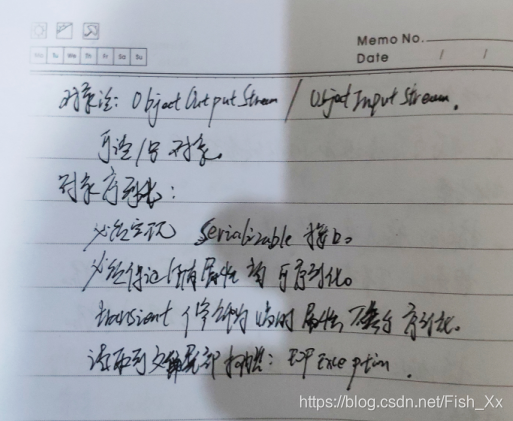 Memo No.
Mo Tu We Th Fr Sa Su
Date / /
对象流: ObjectOutputStream / ObjectInputStream.
可读/写对象。
对象序列化:
必须实现 Serializable 接口。
必须保证所有属性均可序列化。
transient 修饰为临时属性,不参与序列化。
读取到文件尾部抛出: EOFException.
https://blog.csdn.net/Fish_Xx